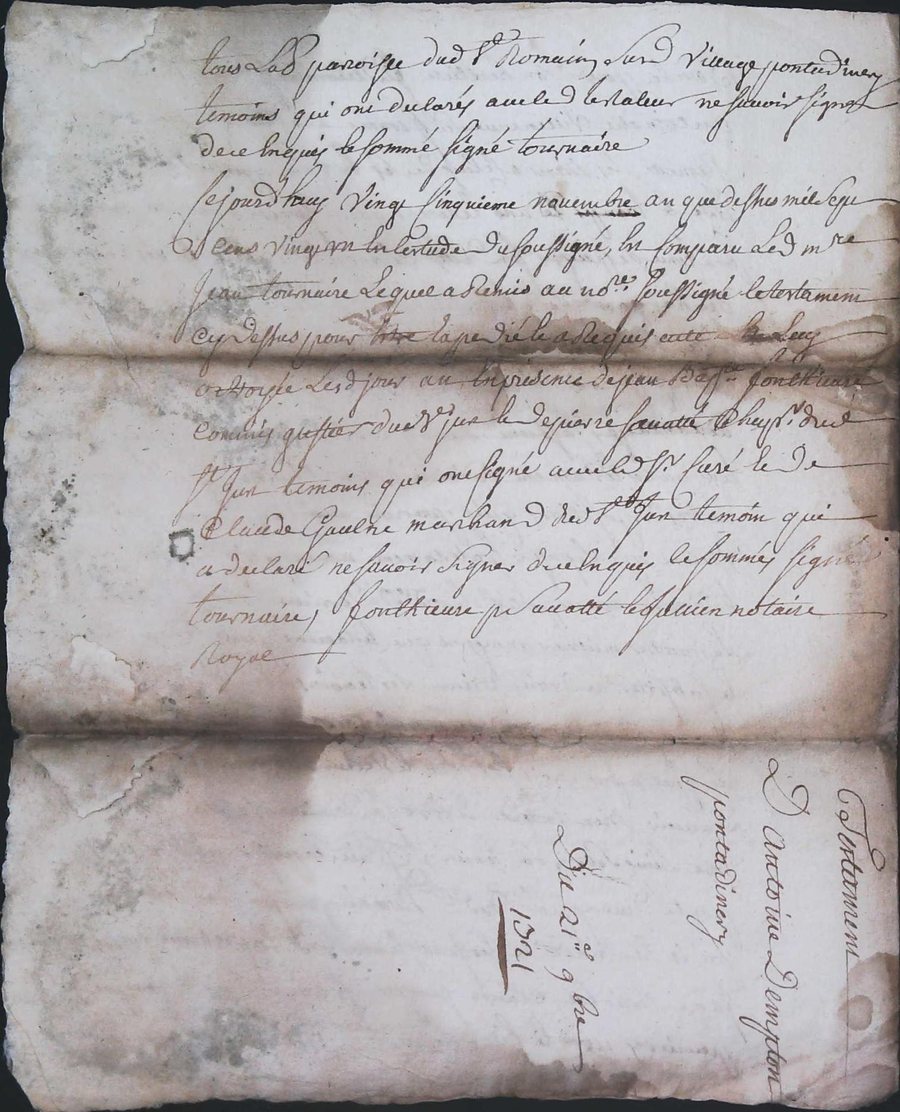 tous Lad paroisse dud St Romain Sur d village pontadinery
temoins qui ont declarés avec led testateur ne scavoir signer
de ce Enquis le somme signé tournaire
Cejourdhuy vingt Cinquieme novembre an que dessus mil sept
cens vingt un En Lestude du soussigné, En Comparu Led mre
Jean tournaire Lequel a Remis au nore soussigné le testament
cy dessus pour Estre Expedié le a Requis acte Luy
octroyée Lesd jour an En presence de jean fonthieure
commis greffier dud St jean de pierre savatté dud
St Jean temoins qui ont signé avec led Sr Curé de
Claude Gaulne marchand dud St Jean temoin qui
a declaré ne savoir signer de ce Enquis le sommés signé
tournaire, fonthieure p Savatté notaire
Royal
Testament
D'antoine Dempton
pontadinery
Du 21e 9bre
1721